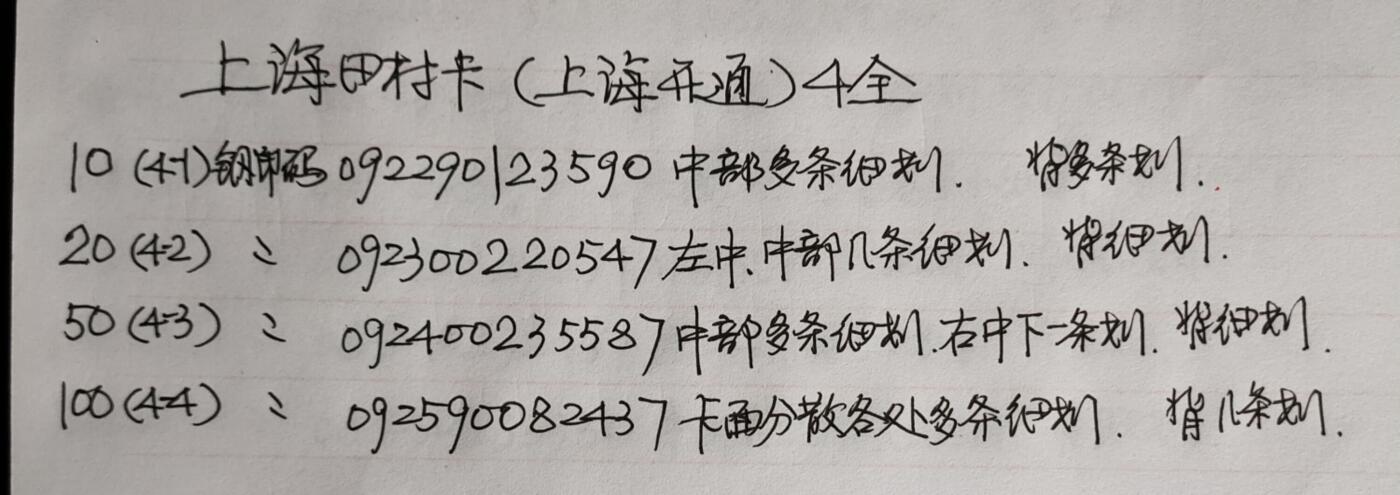 上海田村卡（上海开通）4全
10（4-1）钢印码 092290123590 中部多条细划. 背多条划.
20（4-2）〃 092300220547 左中、中部几条细划. 背细划.
50（4-3）〃 092400235587 中部多条细划.右中下一条划. 背细划.
100（4-4）〃 092590082437 卡面分散各处多条细划. 背几条划.